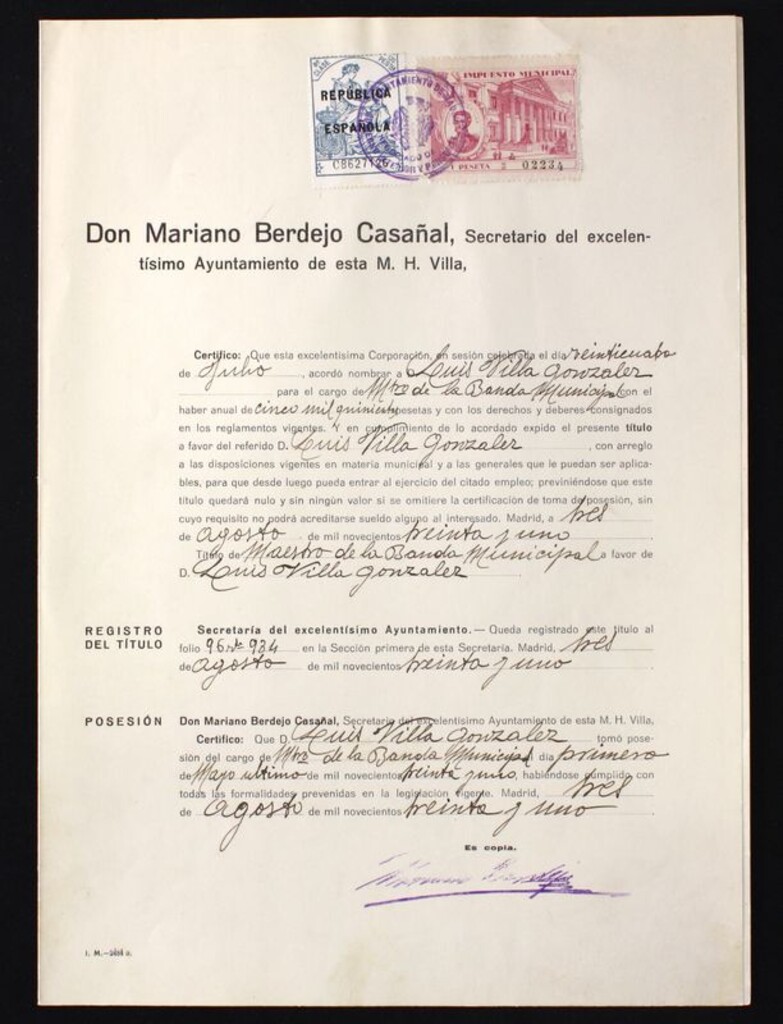 REPÚBLICA
ESPAÑOLA
IMPUESTO MUNICIPAL
1 PESETA
02234
Don Mariano Berdejo Casañal, Secretario del excelen-
tísimo Ayuntamiento de esta M. H. Villa,
Certifico: Que esta excelentísima Corporación, en sesión celebrada el día veinticuatro
de Julio, acordó nombrar a Luis Villa Gonzalez
para el cargo de Mtro de la Banda Municipal con el
haber anual de cinco mil quinientas pesetas y con los derechos y deberes consignados
en los reglamentos vigentes. Y en cumplimiento de lo acordado expido el presente título
a favor del referido D. Luis Villa Gonzalez, con arreglo
a las disposiciones vigentes en materia municipal y a las generales que le puedan ser aplica-
bles, para que desde luego pueda entrar al ejercicio del citado empleo; previniéndose que este
título quedará nulo y sin ningún valor si se omitiere la certificación de toma de posesión, sin
cuyo requisito no podrá acreditarse sueldo alguno al interesado. Madrid, a tres
de agosto de mil novecientos treinta y uno
Título de Maestro de la Banda Municipal a favor de
D. Luis Villa Gonzalez.
REGISTRO
DEL TÍTULO
Secretaría del excelentísimo Ayuntamiento.— Queda registrado este título al
folio 96 934 en la Sección primera de esta Secretaría. Madrid, tres
de agosto de mil novecientos treinta y uno.
POSESIÓN
Don Mariano Berdejo Casañal, Secretario del excelentísimo Ayuntamiento de esta M. H. Villa,
Certifico: Que D. Luis Villa Gonzalez tomó pose-
sión del cargo de Mtro de la Banda Municipal día primero
de Mayo ultimo de mil novecientos treinta y uno, habiéndose cumplido con
todas las formalidades prevenidas en la legislación vigente. Madrid, tres
de agosto de mil novecientos treinta y uno.
Es copia.
I. M.—